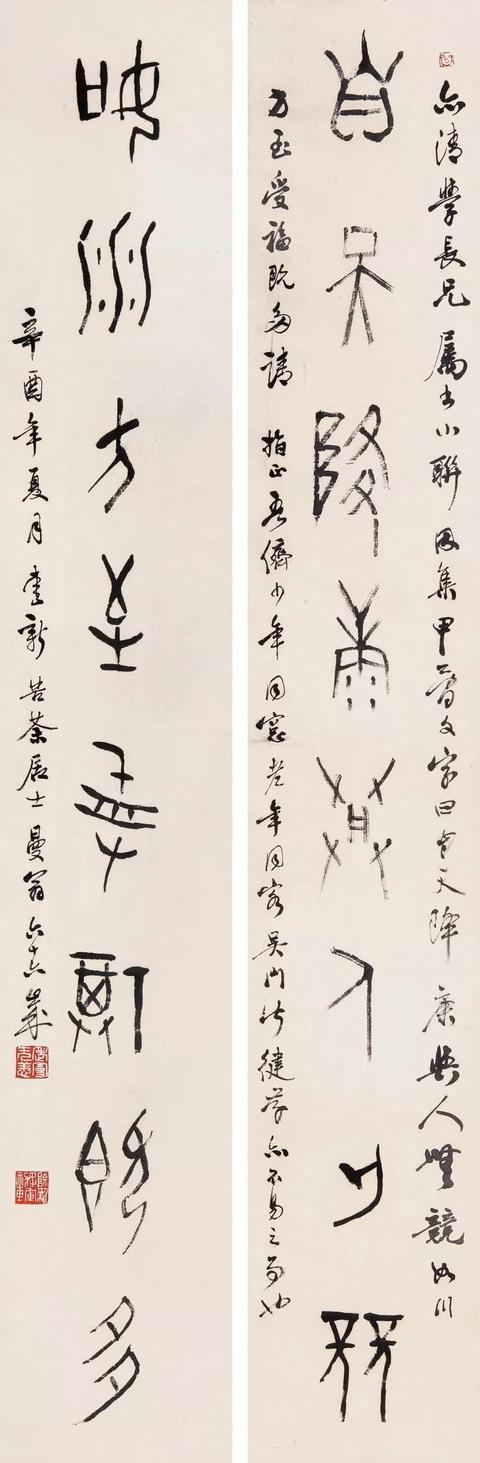 亦清學長兄屬書小聯因集甲骨文字曰自天降康與人無競如川
自天降康與人无競
方至受福既多請 指正吾儕少年同窗老年同客吳門皆健存亦不易之也
如川方至受福既多
辛酉年夏月愛新苦茶居士曼翁六十六歲